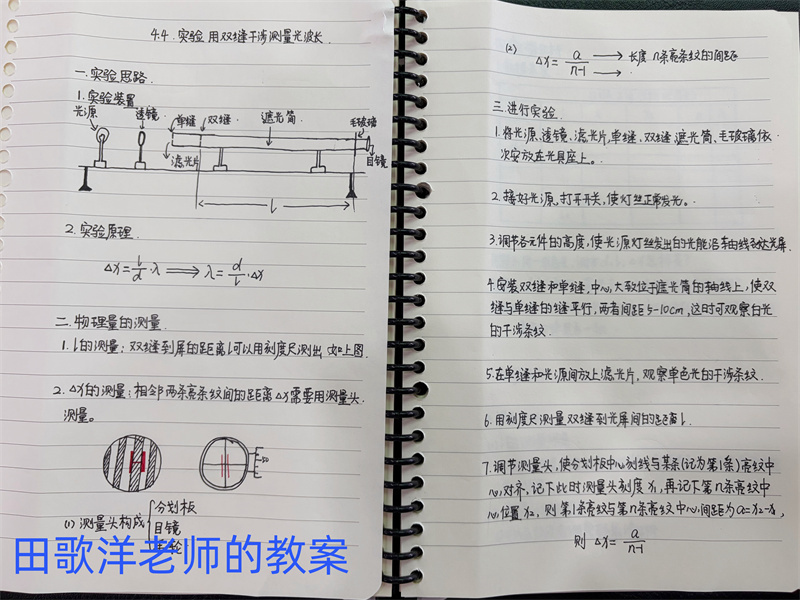 4.4.实验 用双缝干涉测量光波长.
一.实验思路.
1.实验装置
光源
透镜.
单缝
双缝.
遮光筒.
毛玻璃
滤光片
目镜
l
2.实验原理.
Δx=l/d·λ ⟹ λ=d/l·Δx
二.物理量的测量.
1.l的测量:双缝到屏的距离l可以用刻度尺测出.如上图.
2.Δx的测量:相邻两条亮条纹间的距离Δx需要用测量头.
测量。
50
(1)测量头构成
分划板
目镜
田歌洋老师的教案
(2)
Δx=a/(n-1) → 长度 n条亮条纹的间距
→ .
三.进行实验.
1.将光源、透镜、滤光片,单缝、双缝、遮光筒、毛玻璃依.
次安放在光具座上。.
2.接好光源,打开开关,使灯丝正常发光。.
3.调节各元件的高度,使光源灯丝发出的光能沿轴线到达光屏.
4.安装双缝和单缝,中心大致位于遮光筒的轴线上,使双
缝与单缝的缝平行,两者间距5-10cm,这时可观察白光
的干涉条纹.
5.在单缝和光源间放上滤光片,观察单色光的干涉条纹.
6.用刻度尺测量双缝到光屏间的距离l.
7.调节测量头,使分划板中心刻线与某条(记为第1条)亮纹中
心对齐,记下此时测量头刻度x₁,再记下第n条亮纹中
心位置x₂,则第1条亮纹与第n条亮纹中心间距为a=x₂-x₁
则 Δx=a/(n-1)